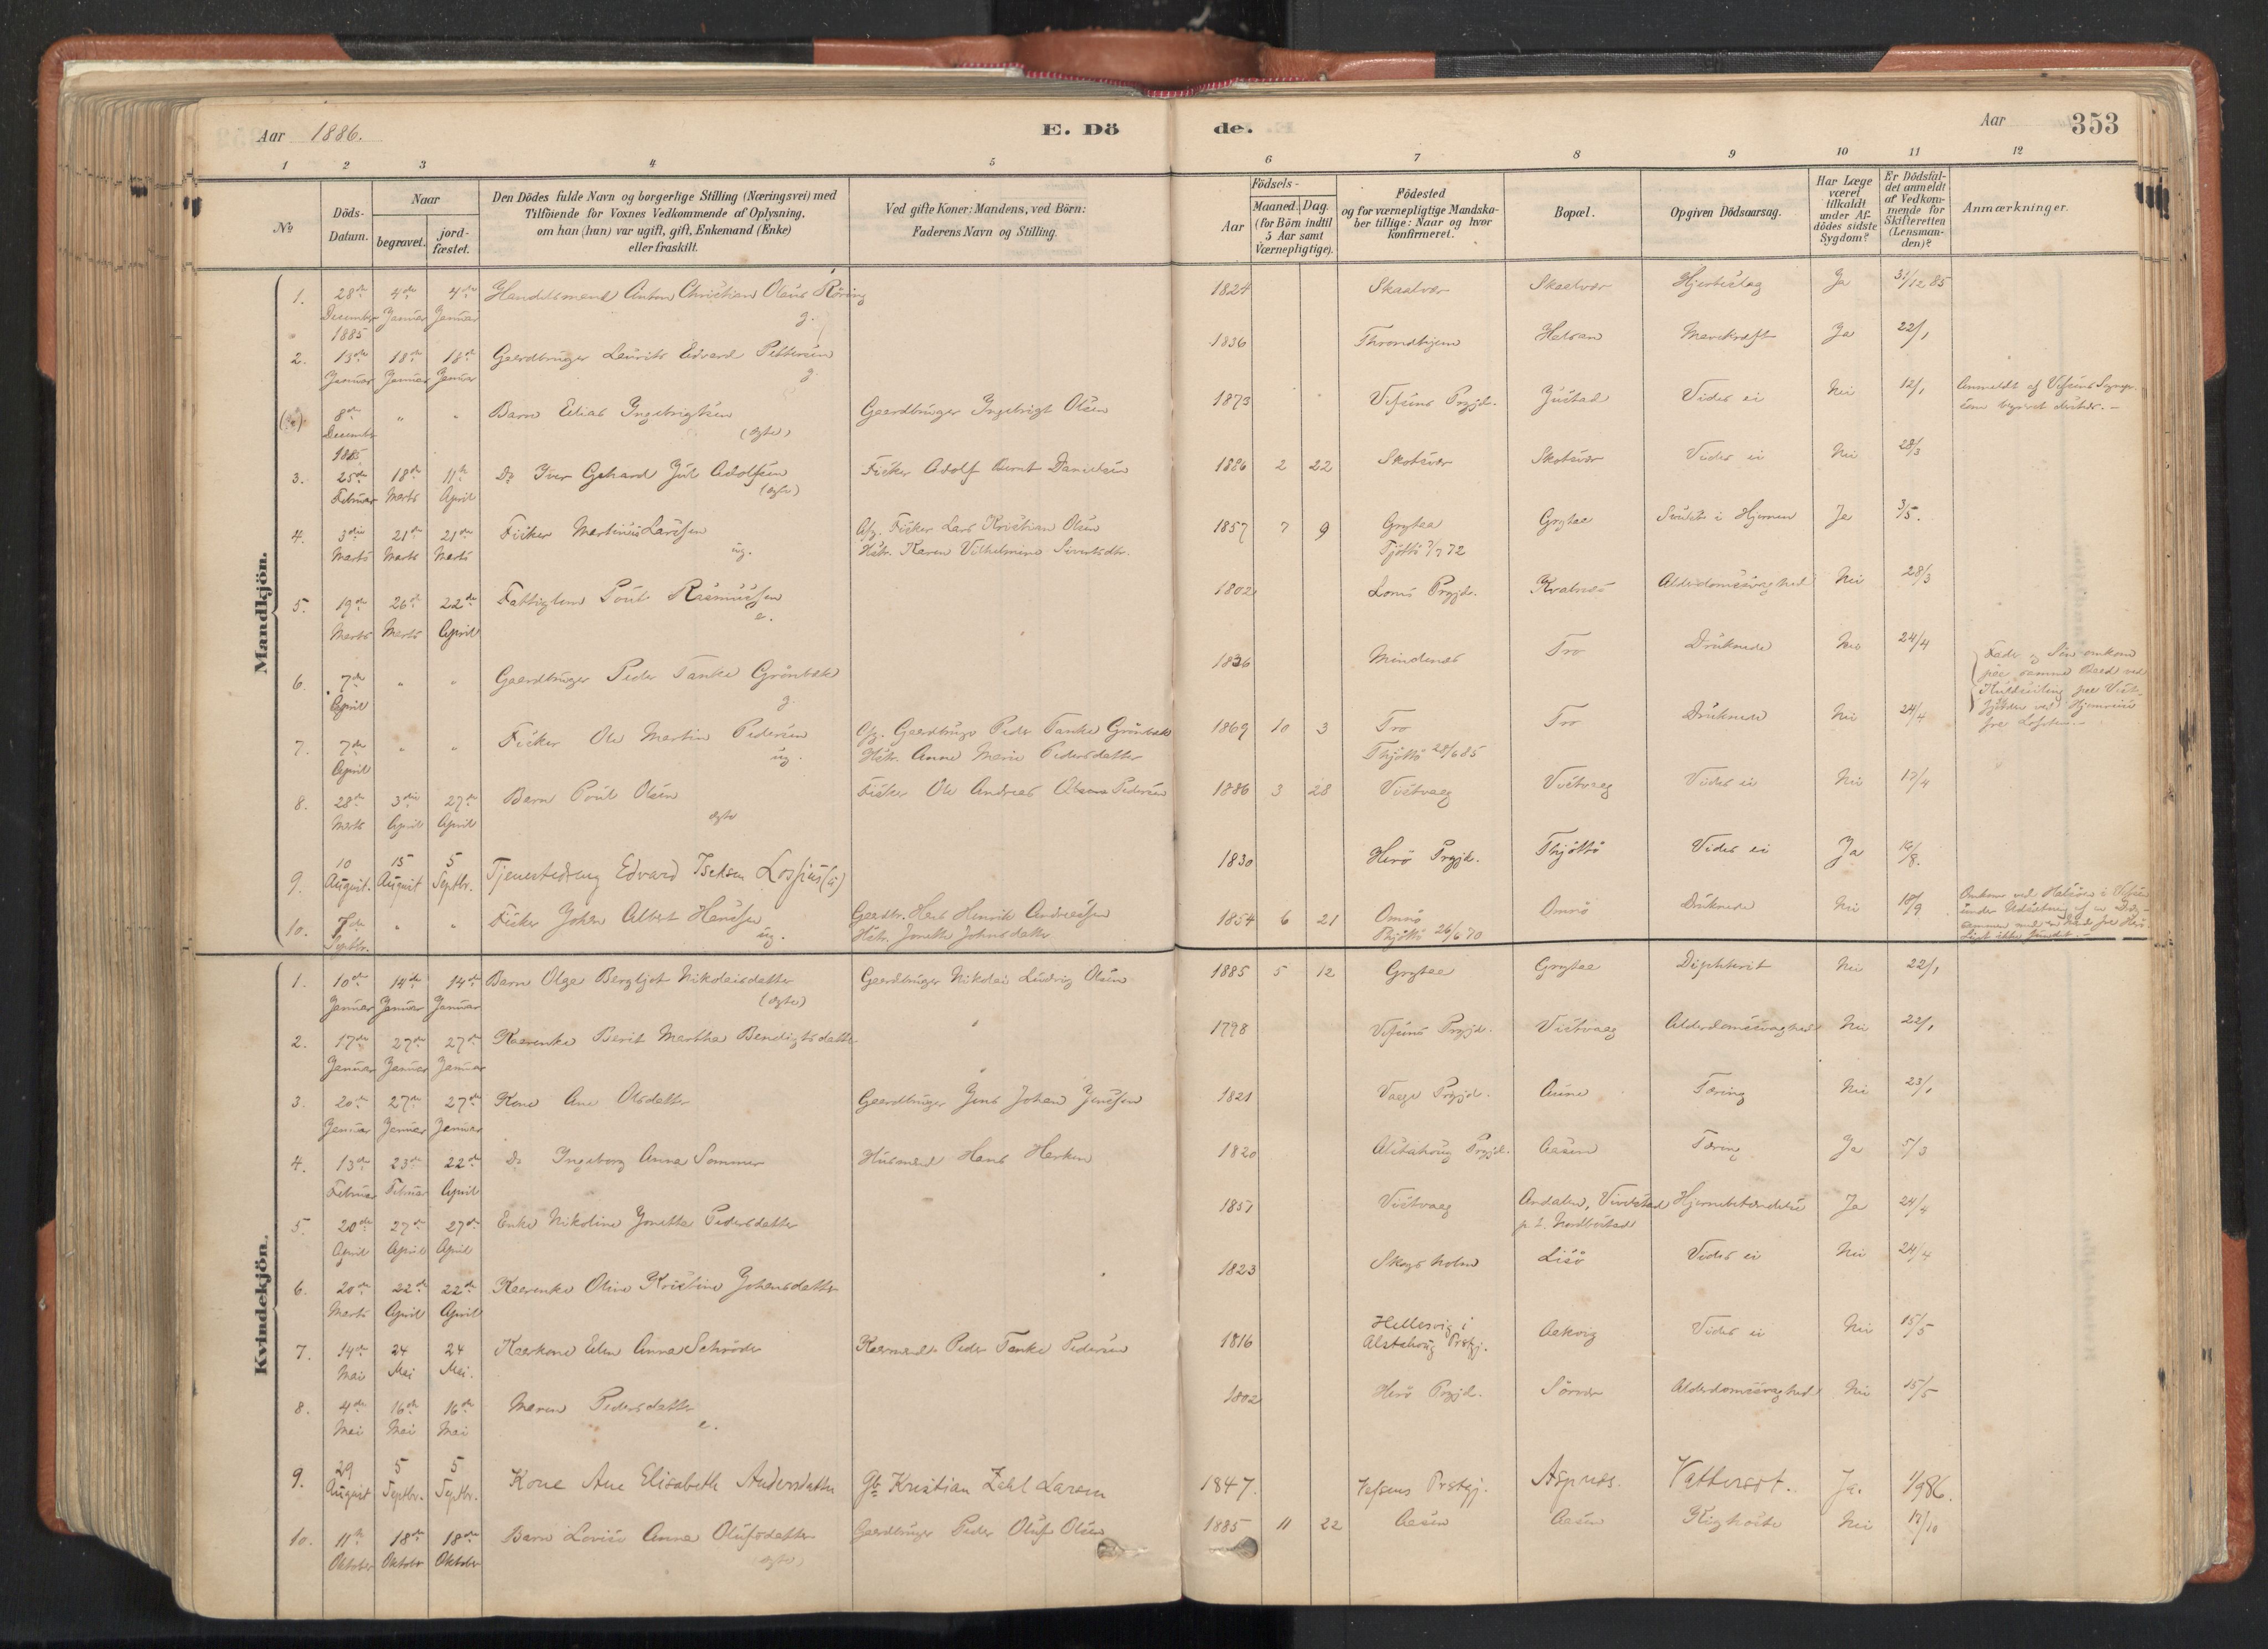 Aar 1886. E. Dö
de. Aar 353
1 2 3 4 5 6 7 8 9 10 11 12
No
Döds-Datum.
Naar
begravet.
jord-fæstet.
Den Dödes fulde Navn og borgerlige Stilling (Næringsvei) med
Tilföiende for Voxnes Vedkommende af Oplysning,
om han (hun) var ugift, gift, Enkemand (Enke)
eller fraskilt.
Ved gifte Koner: Mandens, ved Börn:
Faderens Navn og Stilling.
Födsels-
Aar
Maaned. Dag.
(for Börn indtil
5 Aar samt
Værnepligtige).
Födested
og for værnepligtige Mandska-
ber tillige: Naar og hvor
konfirmeret.
Bopæl.
Opgiven Dödsaarsag.
Har Læge
været
tilkaldt
under Af-
dödes sidste
Sygdom?
Er Dödsfal-
det anmeldt
af Vedkom-
mende for
Skifteretten
(Lensman-
den)?
Anmærkninger.
Mandkjön.
1. 28de December 1885 4de Januar 4de Januar Handelsmand Anton Christian Olaus Röring g. 1824 Skaalvær Skaalvær Hjerteslag Ja 31/12 85
2. 13de Januar 18de Januar 18de Januar Gaardbruger Laurits Edvard Pettersen g. 1836 Throndhjem Ja 22/1
8de December 1885 " " Barn Elias Ingebrigtsen (ægte) Gaardbruger Ingebrigt Olsen 1873 Vefsens Prgjd. Vides ei Nei 12/1 Anmeldt af Vefsens Sogne-
3. 25de Februar 18de Marts 11te April Do Iver Gerhard Jul Adolfsen (ægte) Fisker Adolf Bernt Danielsen 1886 2 22 Skotsvær Skotsvær Vides ei Nei 28/3
4. 3die Marts 21de Marts 21de Marts Fisker Martinus Larssen ug. Afg. Fisker Lars Kristian Olsen
Hstr. Karen Vilhelmine Sivertsdtr. 1857 7 9 Grytaa
Tjöttö 7/7 72 Grytaa i Hjernen Ja 3/5.
5. 19de Marts 26de Marts 22de April Fattiglem Poul Rasmussen e. 1802 Prgjd. Kvalnæs Alderdomssvaghed Nei 28/3
6. 7de April " " Gaardbruger Peder Tanke Grönbæk g. 1836 Mindenæs Tro Druknede Nei 24/4 Fader og Sön omkom
paa samme Baad ved
Kuldseiling paa Vest-
fjorden ved Hjemreise
fra Lofoten.-
7. 7de April " " Fisker Ole Martin Pedersen ug. Afg. Gaardbruger Peder Tanke Grönbæk
Hstr. Anne Marie Pedersdatter 1869 10 3 Tro
Thjöttö 28/6 85 Tro Druknede Nei 24/4
8. 28de Marts 3die April 27de April Barn Poul Olsen ægte Fisker Ole Andreas Pedersen 1886 3 28 Vistvaag Vistvaag Vides ei Nei 17/4
9. 10 August. 15 August 5 Septbr. Tjenestedreng Edvard Isaksen Lossius (u) 1830 Herö Prgjd. Thjöttö Vides ei Ja 14/8.
10. 7de Septbr. " " Fisker Johan Albert Hanssen ug. Gaardbr. Hans Henrik Andreassen
Hstr. Jonetha Johnsdatter 1854 6 21 Omnö
Thjöttö 26/6 70 Omnö Druknede Nei 18/9
Kvindekjön.
1. 10de Januar 14de Januar 14de Januar Barn Olga Bergljot Nikolaisdatter (ægte) Gaardbruger Nikolai Ludvig Olsen 1885 5 12 Grytaa Grytaa Diphterit Nei 22/1
2. 17de Januar 27de Januar 27de Januar Kaarenke Berit Martha Bendigtsdatter 1798 Vefsens Prgjd. Vistvaag Alderdomssvaghed Nei 22/1
3. 20de Januar 27de Januar 27de Januar Kone Ane Olsdatter Gaardbruger Jens Johan Jenssen 1821 Vaage Prgjd. Aune Tæring Nei 23/1
4. 13de Februar 23de Februar 22de April Do Ingeborg Anna Sommer Husmand Hans Harken 1820 Alstahoug Prgjd. Aasen Tæring Ja 5/3
5. 20de April 27de April 27de April Enke Nikoline Jonette Pedersdatter 1857 Vistvaag Andalen, Vivelstad Hjernebetændelse Ja 24/4
6. 20de Marts 22de April 22de April Kaarenke Oline Kristine Johansdatter 1823 Skogsholm Lisö Vides ei Nei 24/4
7. 14de Mai 24 Mai 24 Mai. Kaarkone Elen Anna Schröder Kaarmand Peder Tanke Pedersen 1816 Hellesvig i
Alstahoug Prstgj. Aakvig Vides ei Nei 15/5
8. 4de Mai 16de Mai 16de Mai Maren Pedersdatter e. 1802 Herö Prgjd. Sörvær Alderdomssvaghed Nei 15/5
9. 29 August 5 Septbr. 5 Septbr. Kone Ane Elisabeth Andersdatter Gb. Kristian Zahl Larsen 1847. Vefsens Prstgj. Aspnes. Vattersot. Ja. 1/9 86.
10. 11te Oktober 18de Oktober 18de Oktober Barn Lovise Anna Olufsdatter (ægte) Gaardbruger Peder Oluf Olsen 1885 11 22 Aasen Aasen Kighoste Nei 17/10